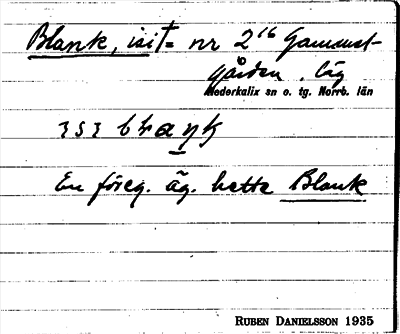 Blank, isit= nr 2¹⁶ Gammel-
gården. läg
Nederkalix sn o. tg. Norrb. län
En föreg. äg. hette Blank
RUBEN DANIELSSON 1935